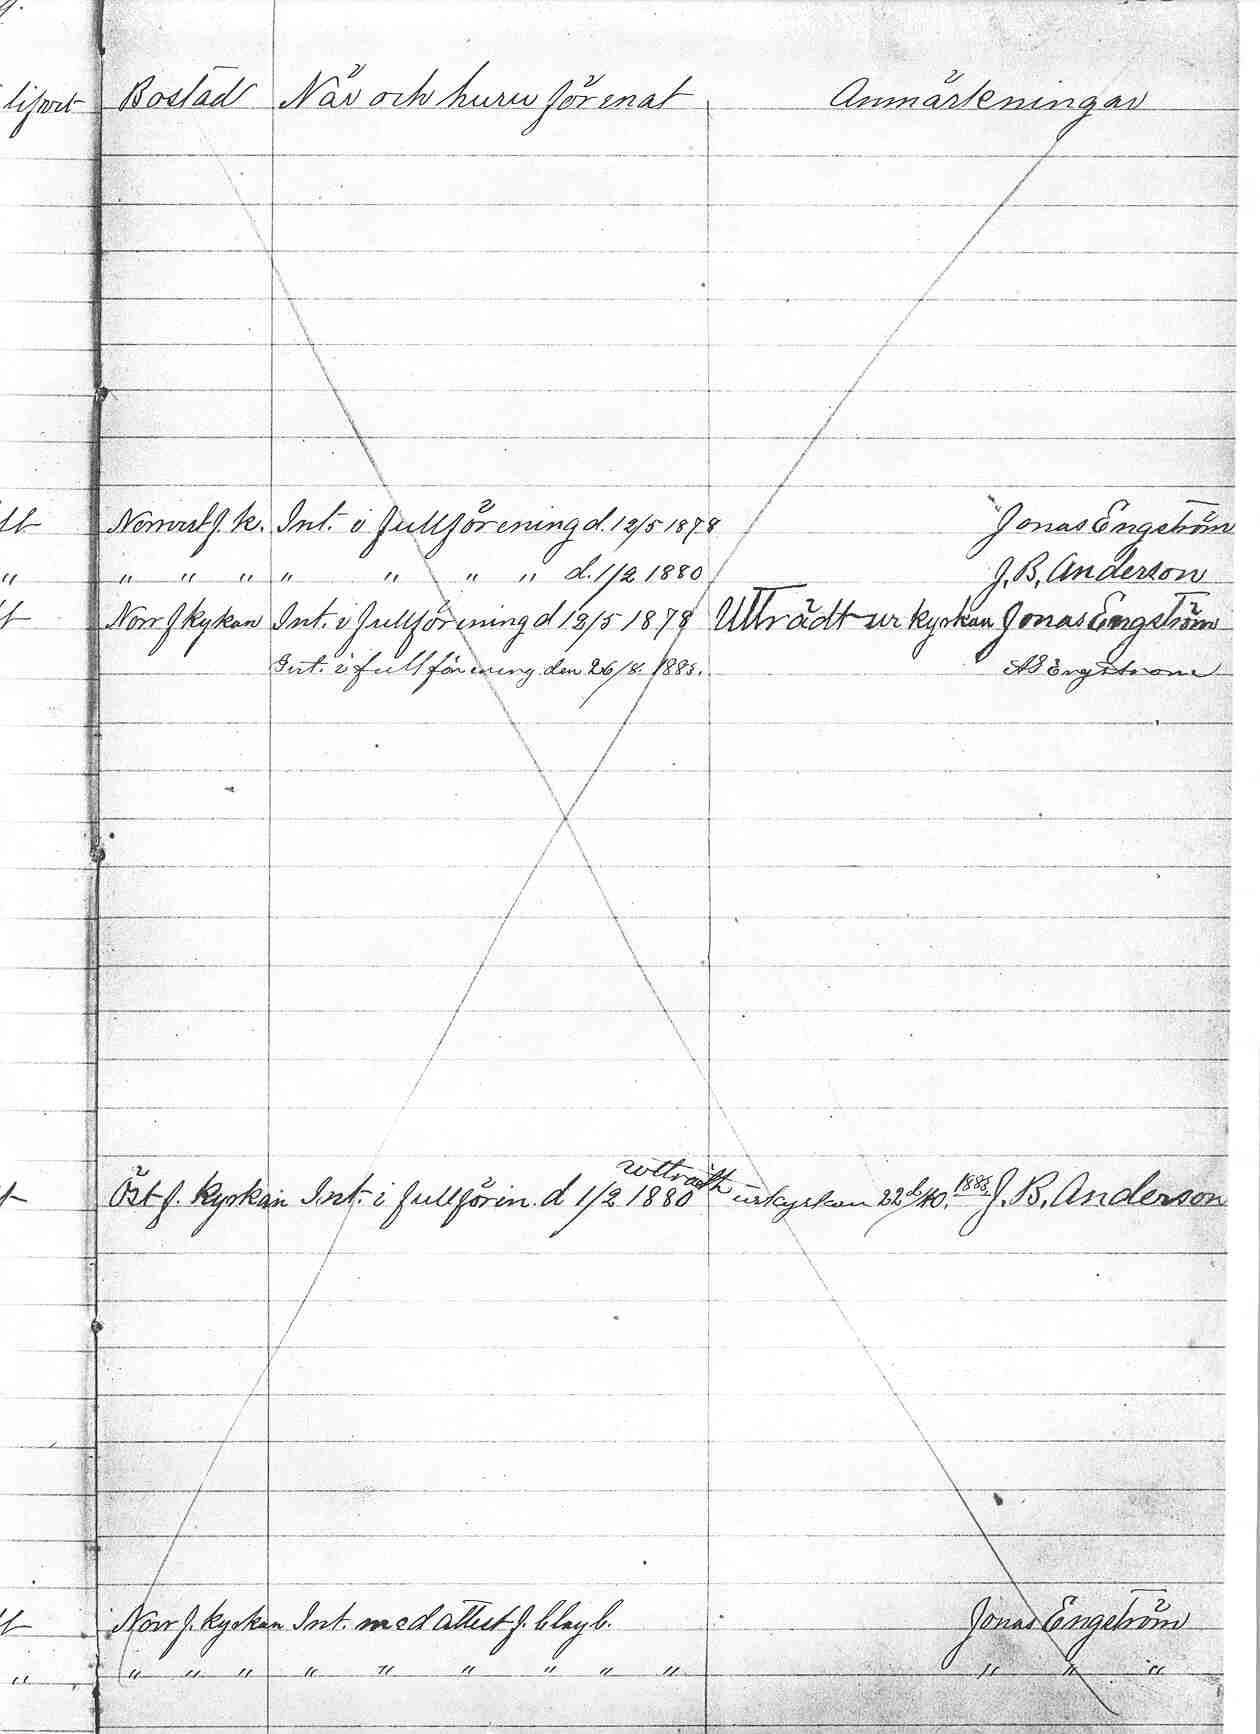 Bostad När och huru förenat Anmärkningar
Norrvest f. k. Int. i fullförening d. 12/5 1878 Jonas Engström
" " " " " " " d. 1/2 1880 J. B. Anderson
Norr f kykan Int. i fullförening d 12/5 1878 Utträdt ur kyrkan Jonas Engström
Int. i fullförening den 26/8. 1883. Engstrom
Öst f. kyrkan Int. i fullförin. d 1/2 1880 urkyrkan 22d/10. 1888. J. B. Anderson
Norr f. kyrkan Int. med attest f. Jonas Engström
" " " " " " " " " " " "